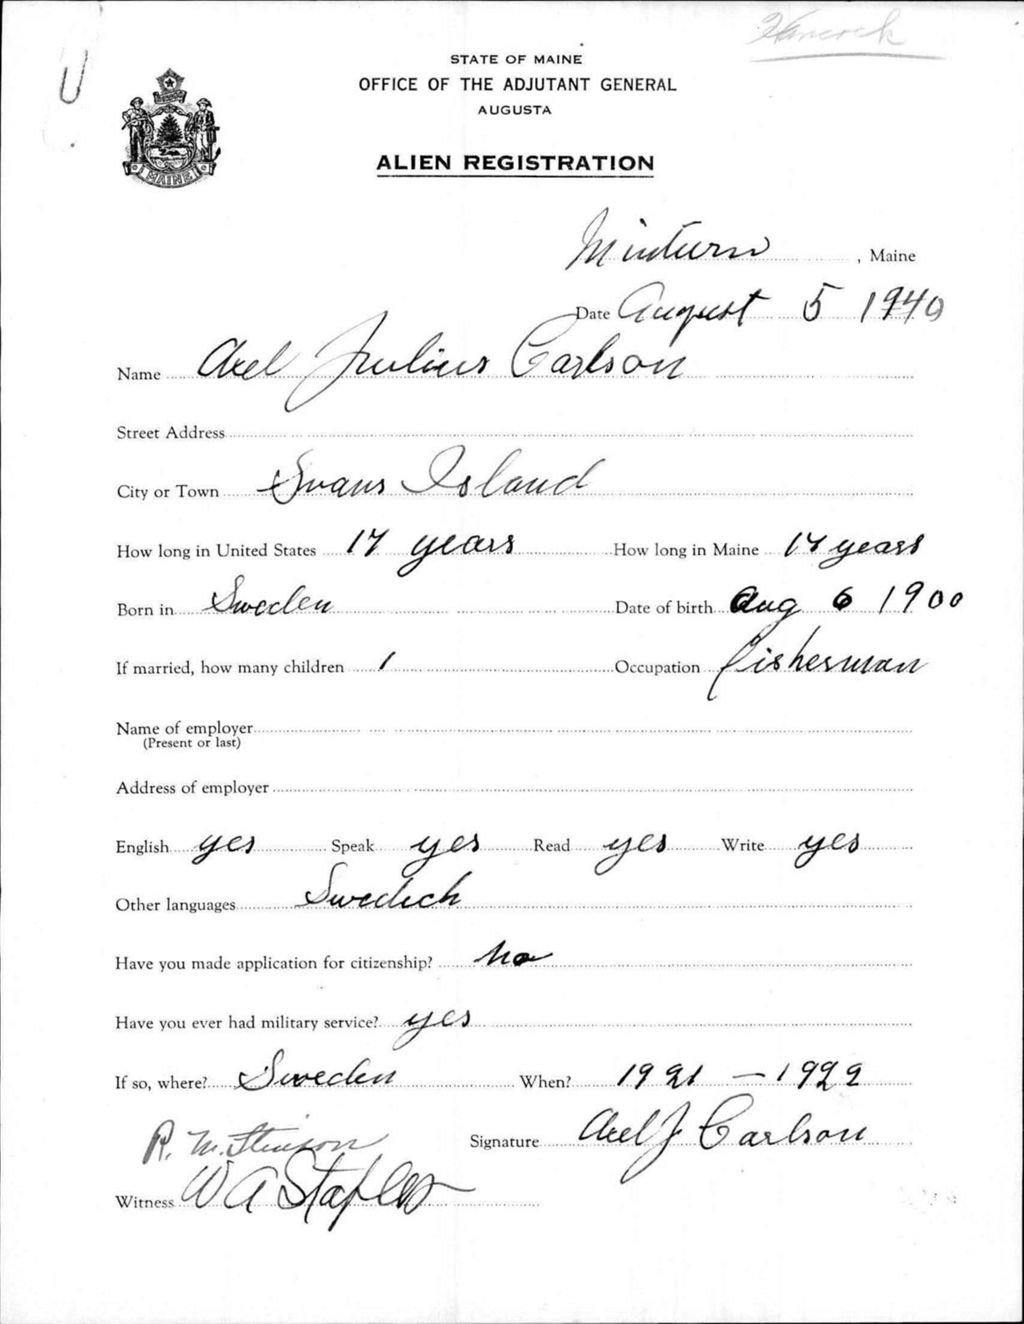 Hancock
STATE OF MAINE
OFFICE OF THE ADJUTANT GENERAL
AUGUSTA
ALIEN REGISTRATION
MAINE
Minturn, Maine
Date August 5 1940
Name Axel Julius Carlson
Street Address
City or Town Swans Island
How long in United States 17 years How long in Maine 17 years
Born in Sweden Date of birth Aug 6 1900
If married, how many children 1 Occupation Fisherman
Name of employer
(Present or last)
Address of employer
English yes Speak yes Read yes Write yes
Other languages Swedich
Have you made application for citizenship? No
Have you ever had military service? yes
If so, where? Sweden When? 1921 - 1922
Signature Axel J Carlson
R. M. Stinson
Witness W A Staples